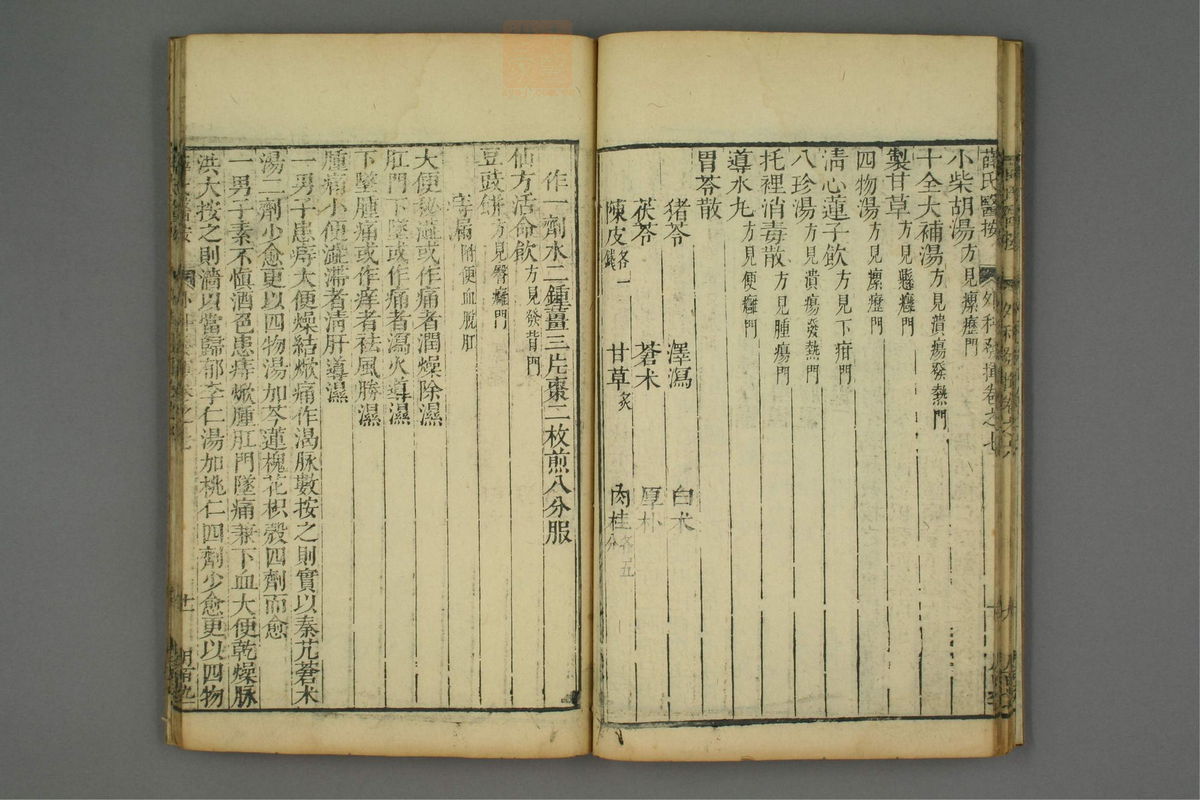 薛氏醫按 外科發揮卷之七
小柴胡湯方見瘰癧門
十全大補湯方見潰瘍發熱門
製甘草方見懸癰門
四物湯方見瘰癧門
清心蓮子飲方見下疳門
八珍湯方見潰瘍發熱門
托裡消毒散方見腫瘍門
導水丸方見便癰門
胃苓散
猪苓 澤瀉 白朮
茯苓 蒼朮 厚朴
陳皮各一錢 甘草炙 肉桂各五分
作一劑水二鍾薑三片棗二枚煎八分服
仙方活命飲方見發背門
豆豉餅方見臀癰門
痔漏附便血脫肛
大便秘澁或作痛者潤燥除濕
肛門下墜或作痛者瀉火導濕
下墜腫痛或作痒者祛風勝濕
腫痛小便澁滯者清肝導濕
一男子患痔大便燥結焮痛作渴脉數按之則實以秦艽蒼朮
湯二劑少愈更以四物湯加芩連槐花枳殼四劑而愈
一男子素不慎酒色患痔焮腫肛門墜痛兼下血大便乾燥脉
洪大按之則濇以當歸郁李仁湯加桃仁四劑少愈更以四物